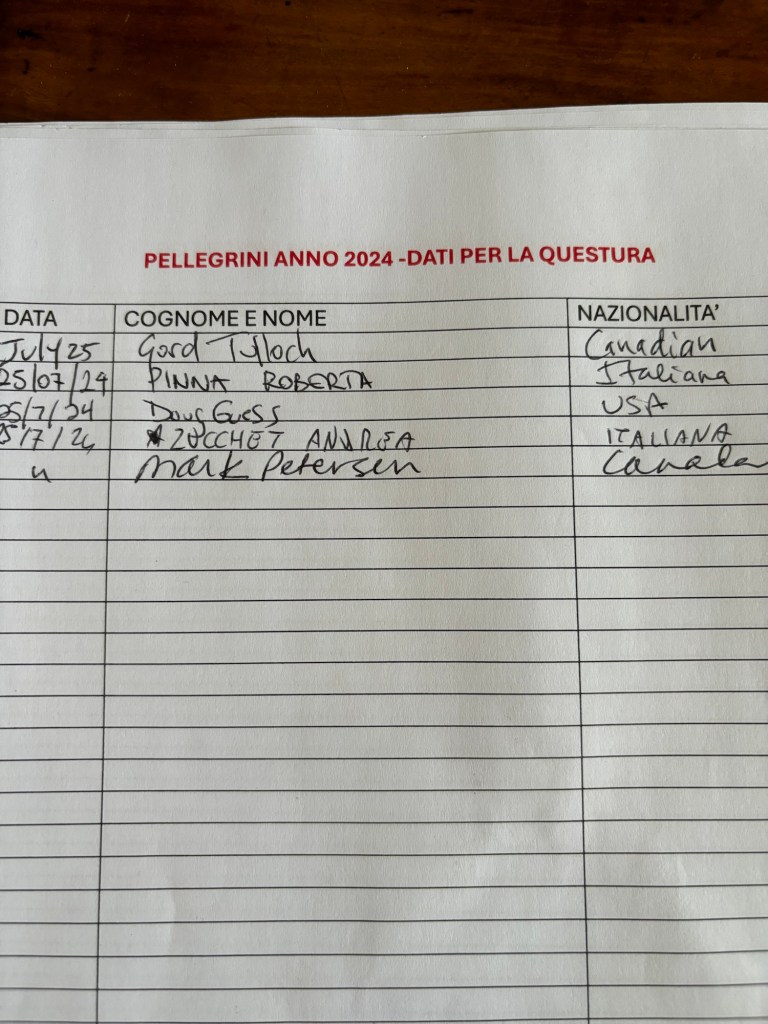 PELLEGRINI ANNO 2024 -DATI PER LA QUESTURA
DATA COGNOME E NOME NAZIONALITA'
July 25 Gord Tulloch Canadian
25/07/24 PINNA ROBERTA Italiana
25/7/24 Doug Guess USA
25/7/24 ZUCCHET ANDREA ITALIANA
" Mark Petersen Canada